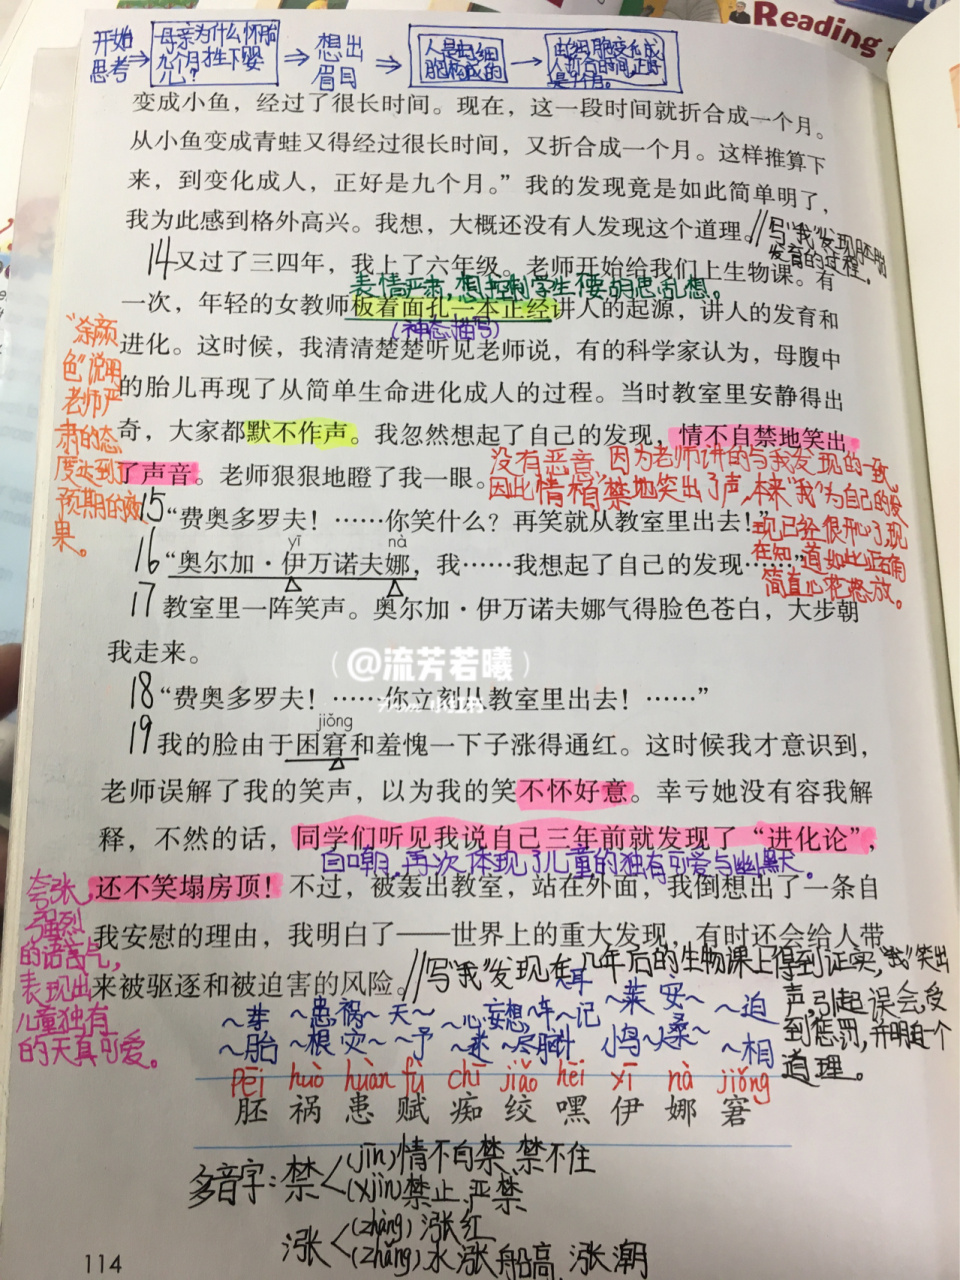 Reading
开始
思考
母亲为什么怀胎
九个月才生下婴
儿？
想出
眉目
人是由细
胞构成的
变成小鱼，经过了很长时间。现在，这一段时间就折合成一个月。
从小鱼变成青蛙又得经过很长时间，又折合成一个月。这样推算下
来，到变化成人，正好是九个月。”我的发现竟是如此简单明了，
我为此感到格外高兴。我想，大概还没有人发现这个道理。
//写“我”发现胚胎
发育的过程。
14又过了三四年，我上了六年级。老师开始给我们上生物课。有
表情严肃，想控制学生不要胡思乱想。
一次，年轻的女教师板着面孔一本正经讲人的起源，讲人的发育和
（神态描写）
进化。这时候，我清清楚楚听见老师说，有的科学家认为，母腹中
的胎儿再现了从简单生命进化成人的过程。当时教室里安静得出
奇，大家都默不作声。我忽然想起了自己的发现，情不自禁地笑出
了声音。老师狠狠地瞪了我一眼。
“涂颜
色”说明
老师严
肃的态
度达到了
预期的效
果。
没有恶意，因为老师讲的与我发现的一致，
因此情不自禁地笑出了声，本来“我”为自己的发
现已经很开心了，现
在知道如此正确
简直心花怒放。
15“费奥多罗夫！……你笑什么？再笑就从教室里出去！”
yī nà
16“奥尔加·伊万诺夫娜，我……我想起了自己的发现……”
17教室里一阵笑声。奥尔加·伊万诺夫娜气得脸色苍白，大步朝
我走来。
（@流芳若曦）
小红书
18“费奥多罗夫！……你立刻从教室里出去！……”
jiǒng
19我的脸由于困窘和羞愧一下子涨得通红。这时候我才意识到，
老师误解了我的笑声，以为我的笑不怀好意。幸亏她没有容我解
释，不然的话，同学们听见我说自己三年前就发现了“进化论”，
自嘲，再次体现了儿童的独有可爱与幽默。
还不笑塌房顶！不过，被轰出教室，站在外面，我倒想出了一条自
我安慰的理由，我明白了——世界上的重大发现，有时还会给人带
来被驱逐和被迫害的风险。
夸张，
强烈
的语气，
表现出
儿童独有
的天真可爱。
//写“我”发现在几年后的生物课上得到证实，“我”笑出
声，引起误会，受
到惩罚，并明白一个
道理。
～芽 ～患 祸～ 天～ ～心妄想 ～记 ～莱 ～迫
～胎 ～根 灾～ ～予 ～迷 ～相
pēi huò huàn fù chī jiǎo hēi yī nà jiǒng
胚 祸 患 赋 痴 绞 嘿 伊 娜 窘
多音字：禁
(jīn)情不自禁 禁不住
(jìn)禁止 严禁
涨
(zhàng)涨红
(zhǎng)水涨船高 涨潮
114